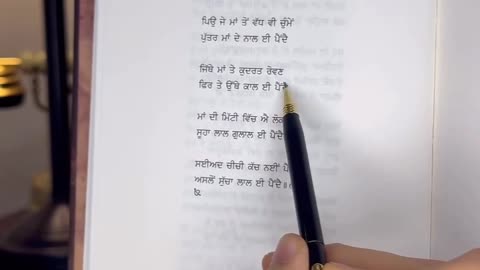 ਪਿਉ ਜੇ ਮਾਂ ਤੋਂ ਵੱਧ ਵੀ ਚੁੰਮੇਂ
ਪੁੱਤਰ ਮਾਂ ਦੇ ਨਾਲ ਈ ਪੈਂਦੈ
ਜਿੱਥੇ ਮਾਂ ਤੇ ਕੁਦਰਤ ਰੋਵਣ
ਫਿਰ ਤੇ ਉੱਥੇ ਕਾਲ ਈ ਪੈਂਦੈ
ਮਾਂ ਦੀ ਮਿੱਟੀ ਵਿੱਚ ਐ ਲੋਕ
ਸੂਹਾ ਲਾਲ ਗੁਲਾਲ ਈ ਪੈਂਦੈ
ਸਈਅਦ ਚੀਚੀ ਕੱਚ ਨਈਂ
ਅਸਲੋਂ ਸੁੱਚਾ ਲਾਲ ਈ ਪੈਂਦੈ॥